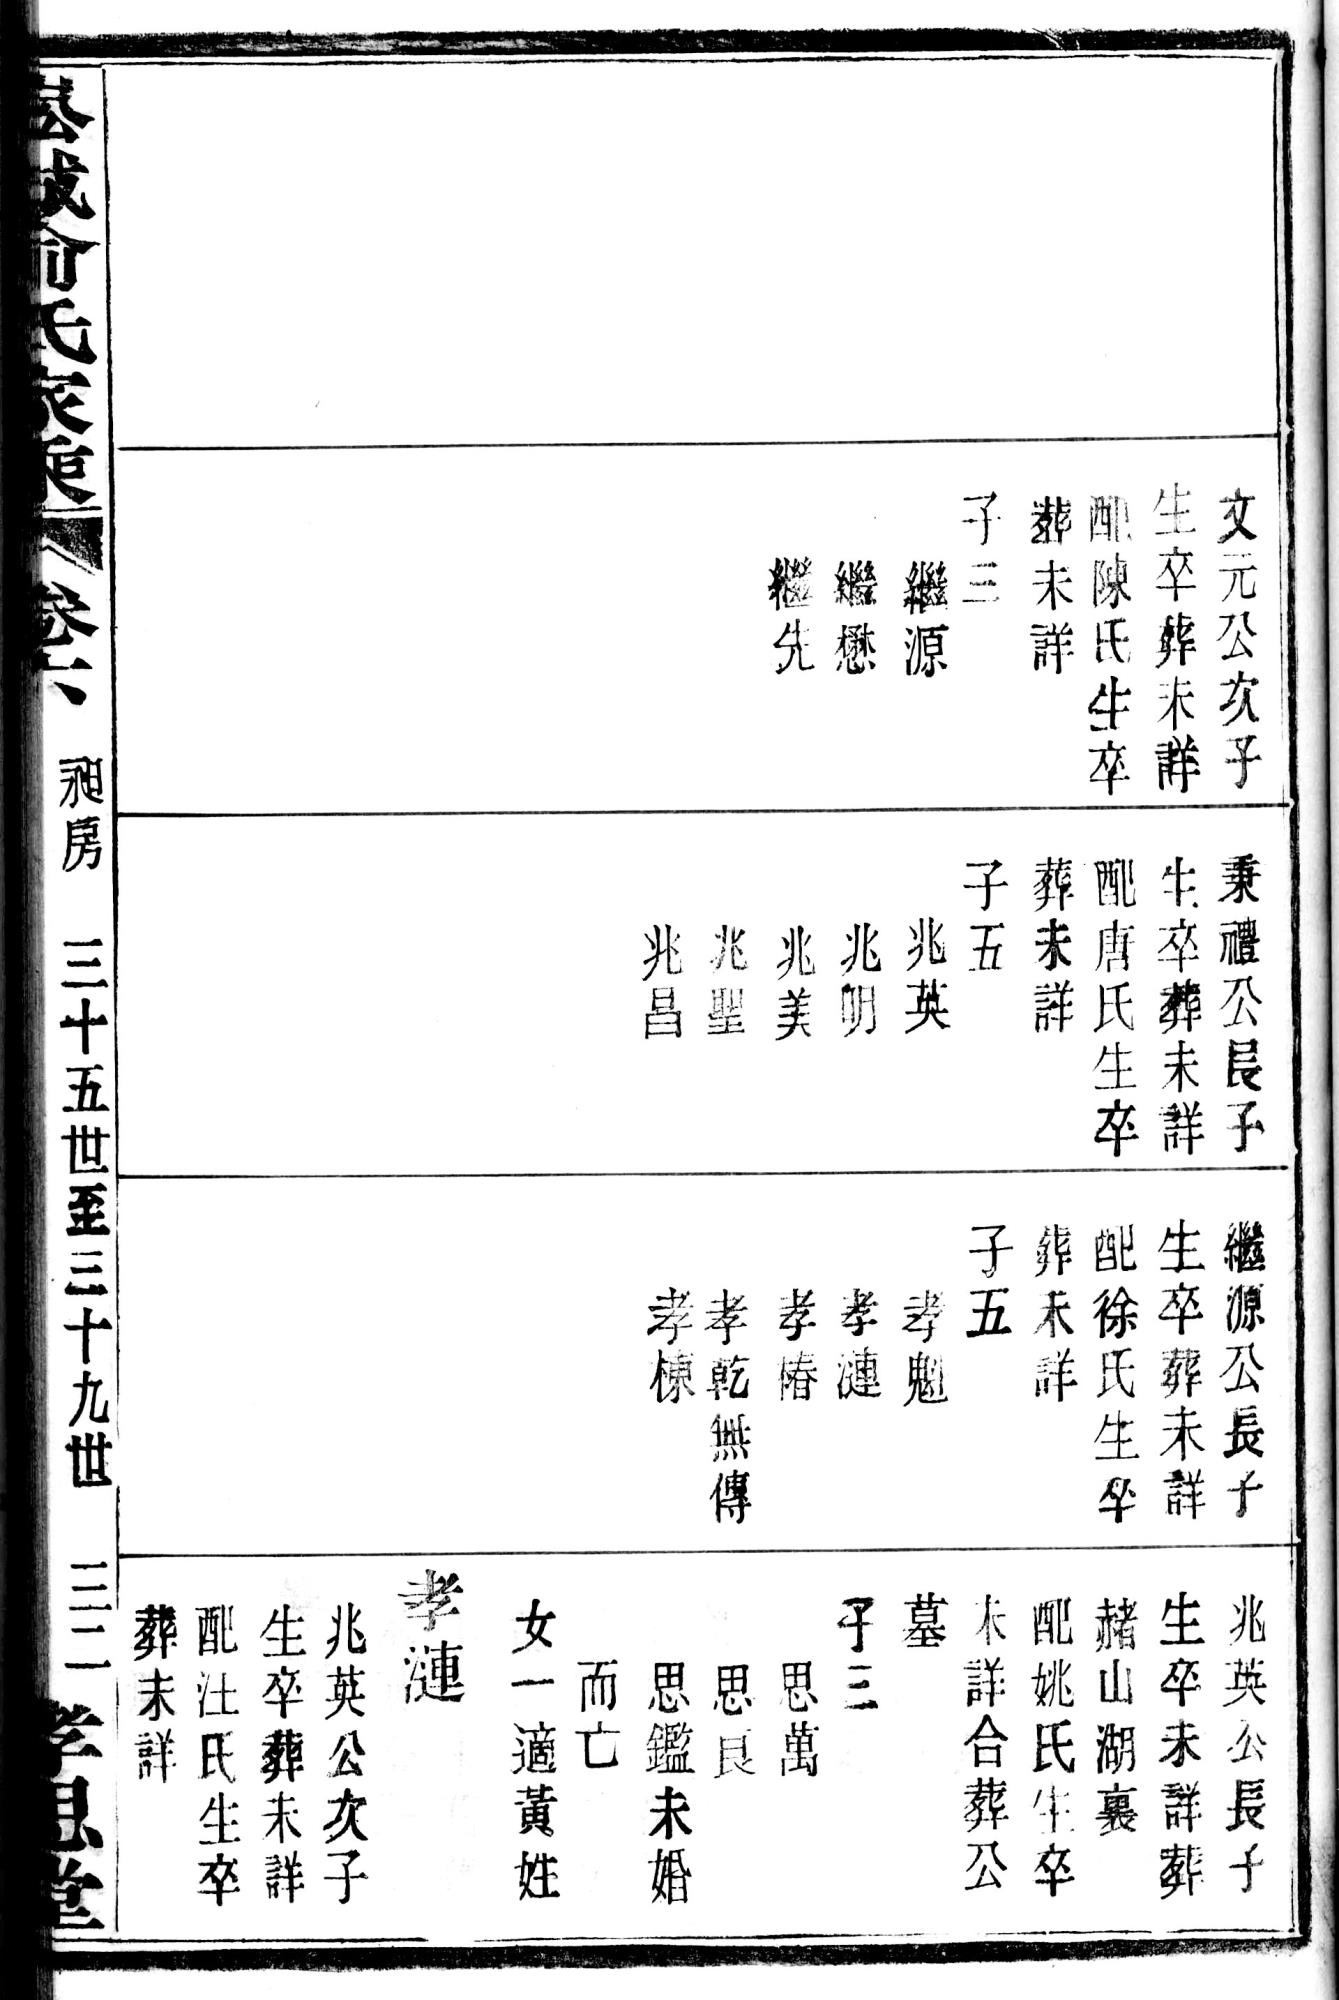 文元公次子
生卒葬未詳
配陳氏生卒
葬未詳
子三
繼源
繼懋
繼先
秉禮公長子
生卒葬未詳
配唐氏生卒
葬未詳
子五
兆英
兆明
兆美
兆聖
兆昌
繼源公長子
生卒葬未詳
配徐氏生卒
葬未詳
子五
孝魁
孝漣
孝椿
孝乾無傳
孝棟
兆英公長子
生卒未詳葬
赭山湖裏
配姚氏生卒
未詳合葬公
墓
子三
思萬
思良
思鑑未婚
而亡
女一適黃姓
孝漣
兆英公次子
生卒葬未詳
配汪氏生卒
葬未詳
俞氏家乘
卷六
昶房
三十五世至三十九世
三二
孝思堂